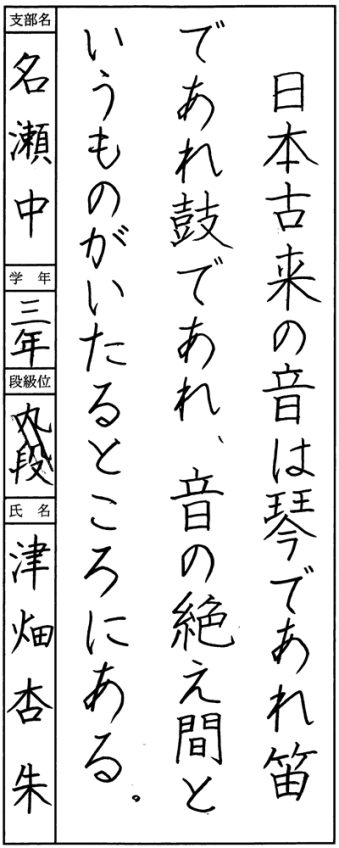 日本古来の音は琴であれ笛
であれ鼓であれ、音の絶え間と
いうものがいたるところにある。
支部名
名瀬中
学年
三年
段級位
九段
氏名
津畑杏朱